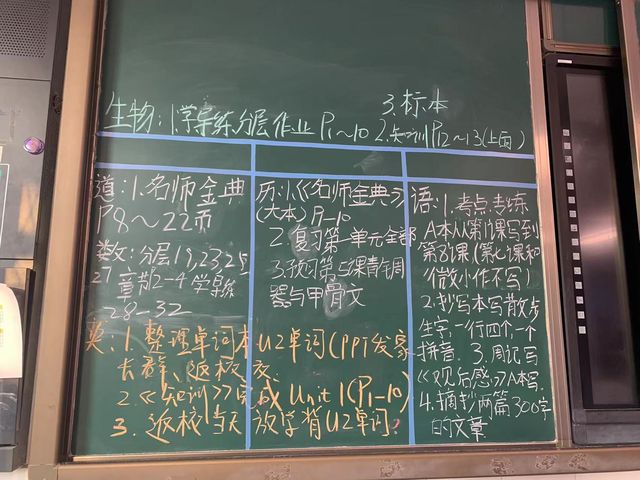 生物:1.学导练分层作业 P1~10 2.知训P12~13(上面)
3.标本
道:1.名师金典
P8~22而
数:分层19,23 25
27 章节2-4 学导练
28-32
历:1.《名师金典》
(大本)P1-10
2.复习第一单元全部
3.预习第5课青铜
器与甲骨文
语:1.考点专练
A本从第1课写到
第8课(第七课和
微小作不写)
2.抄写本写散步
生字,一行四个,一个
拼音. 3.周记写
《观后感》A本写.
4.摘抄两篇300字
的文章
英:1.整理单词本U2单词(PPT发家
长群、返校交
2.《知训》完成Unit 1(P1-10)
3.返校当天放学背U2单词.